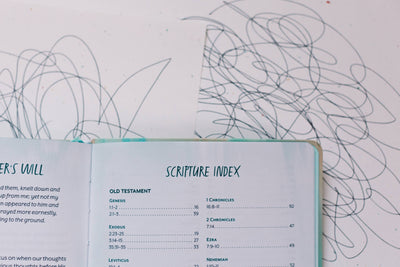 ER'S WILL
d them, knelt down and
up from me; yet not my
n appeared to him and
rayed more earnestly,
ng to the ground.
cus on when our thoughts
SCRIPTURE INDEX
OLD TESTAMENT
GENESIS
1:1-2 16
2:1-3 39
EXODUS
2:23-25 19
3:14-15 27
35:31-35 33
LEVITICUS
1 CHRONICLES
16:8-11 92
2 CHRONICLES
7:14 47
EZRA
7:9-10 49
NEHEMIAH